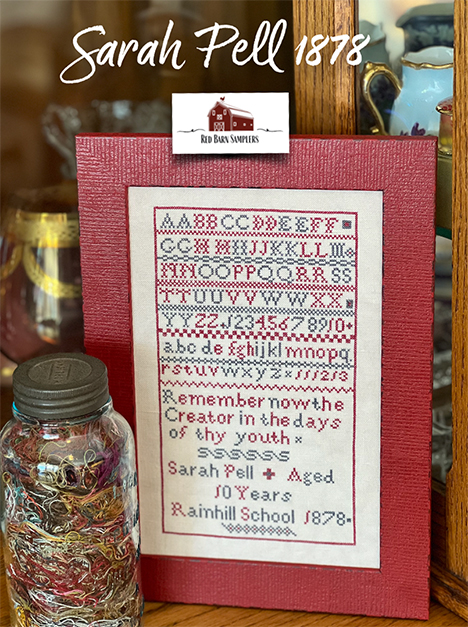 Sarah Pell 1878
RED BARN SAMPLERS
AABBCCDDEEFF
GGHHIIJJKKLLM
NNOOPPQQRRSS
TTUUVVWWXX
YYZZ12345678910+
abcdefghijklmnopq
rstuvwxyz×111213
Remember now the
Creator in the days
of thy youth×
SSSSSS
Sarah Pell + Aged
10 Years
Rainhill School 1878